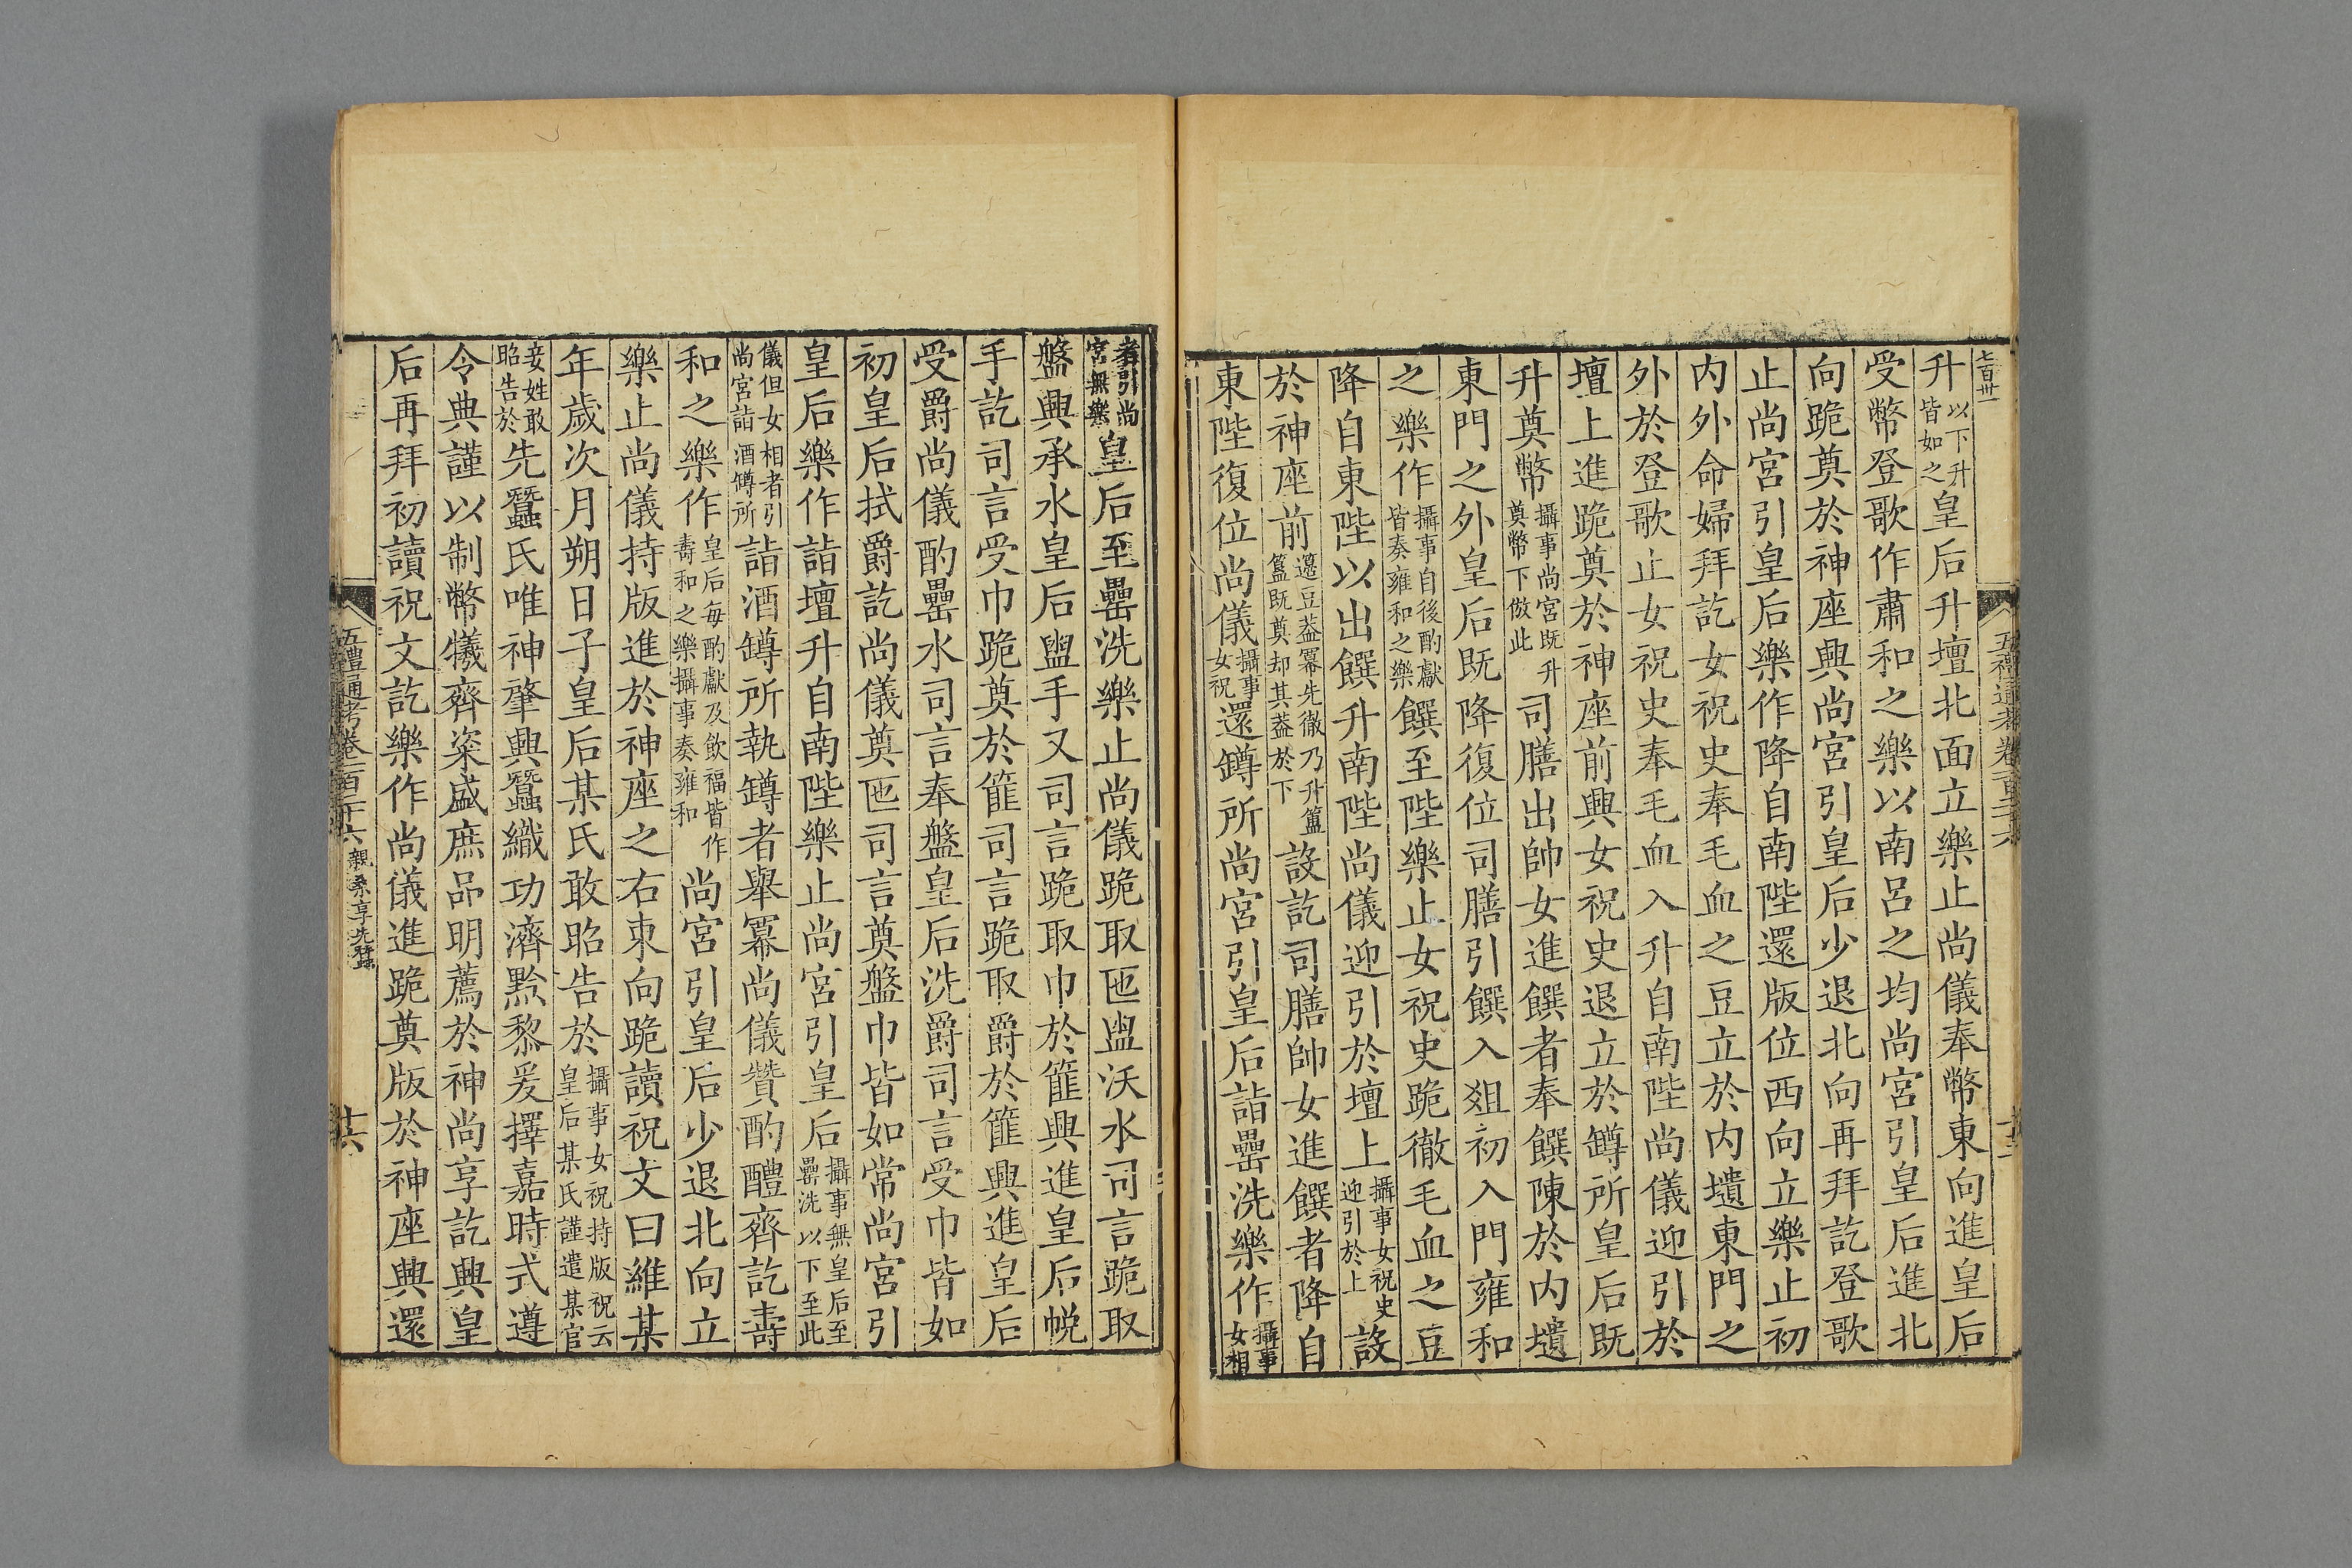 升以下升皆如之皇后升壇北面立樂止尚儀奉幣東向進皇后
受幣登歌作肅和之樂以南呂之均尚宮引皇后進北
向跪奠於神座興尚宮引皇后少退北向再拜訖登歌
止尚宮引皇后樂作降自南陛還版位西向立樂止初
內外命婦拜訖女祝史奉毛血之豆立於內壝東門之
外於登歌止女祝史奉毛血入升自南陛尚儀迎引於
壇上進跪奠於神座前興女祝史退立於罇所皇后既
升奠幣攝事尚宮既升奠幣下倣此司膳出帥女進饌者奉饌陳於內壝
東門之外皇后既降復位司膳引饌入俎初入門雍和
之樂作攝事自後酌獻皆奏雍和之樂饌至陛樂止女祝史跪徹毛血之豆
降自東陛以出饌升南陛尚儀迎引於壇上攝事女祝史迎引於上設
於神座前籩豆葢冪先徹乃升簠簋既奠却其葢於下設訖司膳帥女進饌者降自
東陛復位尚儀攝事女祝還罇所尚宮引皇后詣罍洗樂作攝事女相
者引尚宮無樂皇后至罍洗樂止尚儀跪取匜盥沃水司言跪取
盤興承水皇后盥手又司言跪取巾於篚興進皇后帨
手訖司言受巾跪奠於篚司言跪取爵於篚興進皇后
受爵尚儀酌罍水司言奉盤皇后洗爵司言受巾皆如
初皇后拭爵訖尚儀奠匜司言奠盤巾皆如常尚宮引
皇后樂作詣壇升自南陛樂止尚宮引皇后攝事無皇后至罍洗以下至此
儀但女相者引尚宮詣酒罇所詣酒罇所執罇者舉冪尚儀贊酌醴齊訖壽
和之樂作皇后每酌獻及飲福皆作壽和之樂攝事奏雍和尚宮引皇后少退北向立
樂止尚儀持版進於神座之右東向跪讀祝文曰維某
年歲次月朔日子皇后某氏敢昭告於攝事女祝持版祝云皇后某氏謹遣某官
妾姓敢昭告於先蠶氏唯神肇興蠶織功濟黔黎爰擇嘉時式遵
令典謹以制幣犧齊粢盛庶品明薦於神尚享訖興皇
后再拜初讀祝文訖樂作尚儀進跪奠版於神座興還
五禮通考卷一百二十六 親桑享先蠶